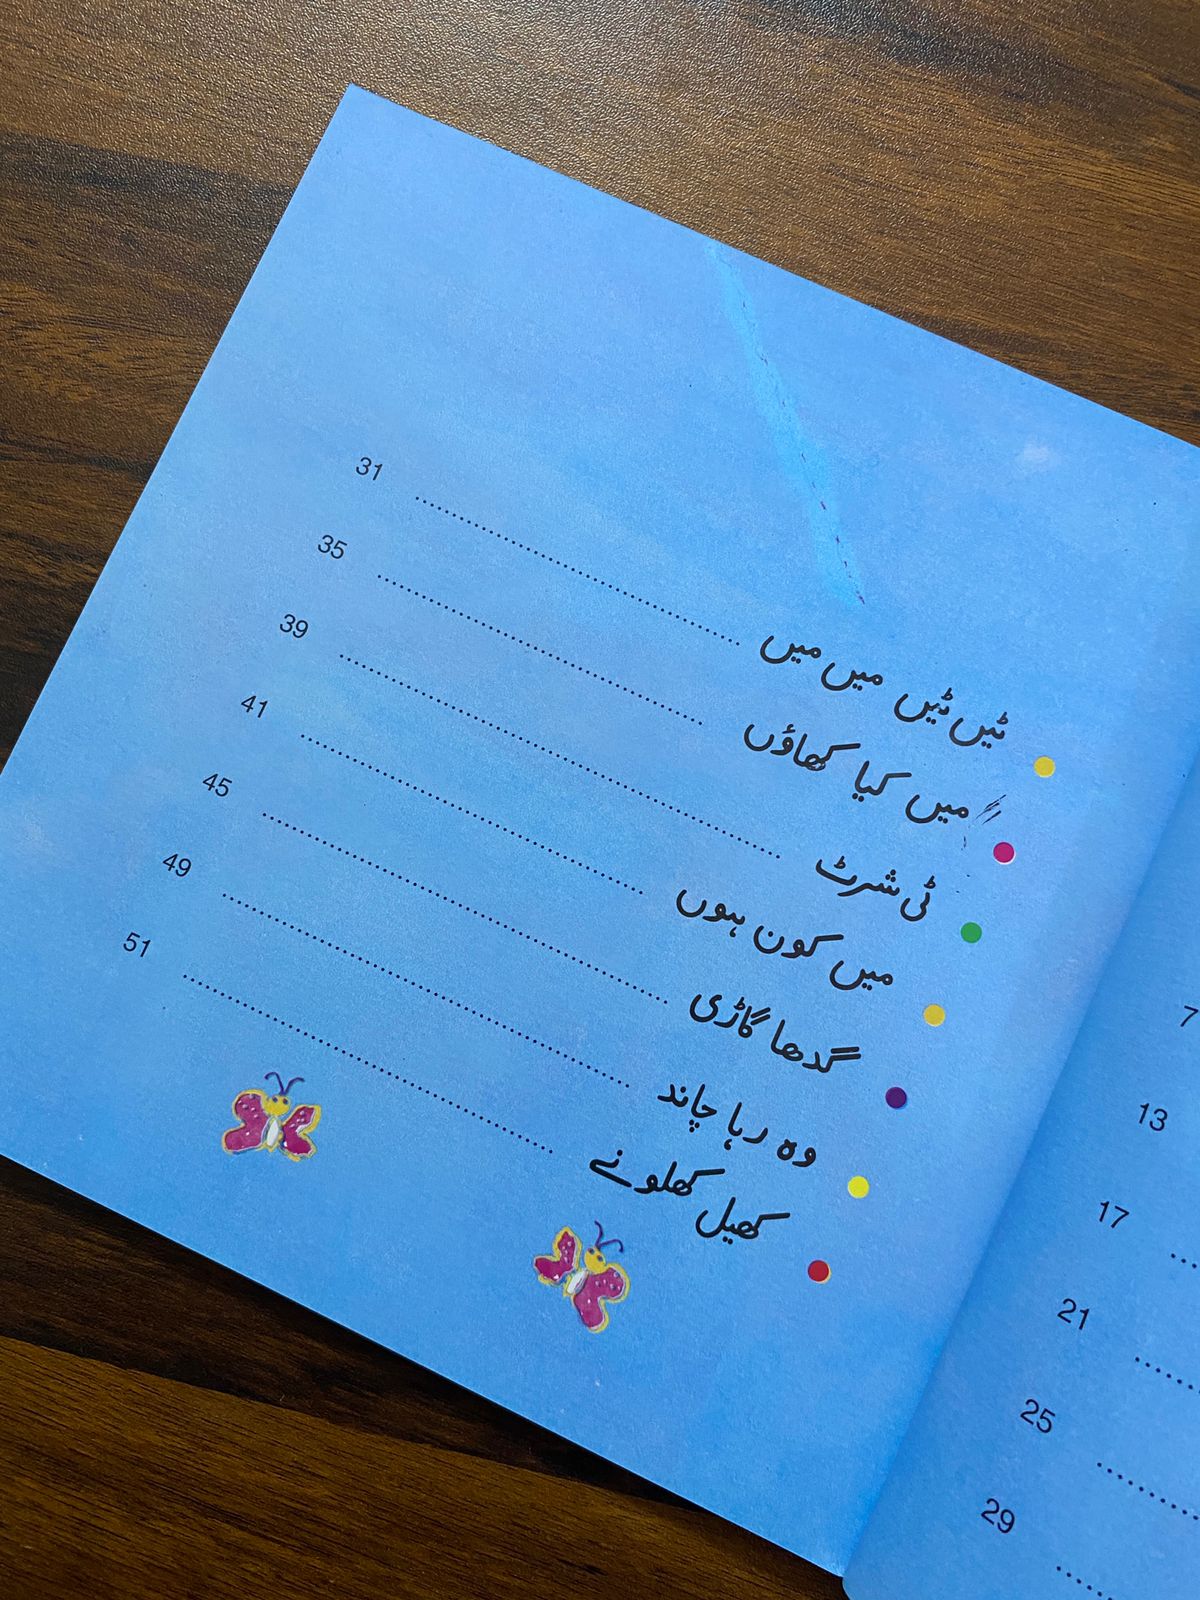 ٹیں ٹیں میں میں ........ 31
میں کیا کھاؤں ........ 35
ٹی شرٹ ........ 39
میں کون ہوں ........ 41
گدھا گاڑی ........ 45
وہ رہا چاند ........ 49
کھیل کھلونے ........ 51
7
13
17
21
25
29